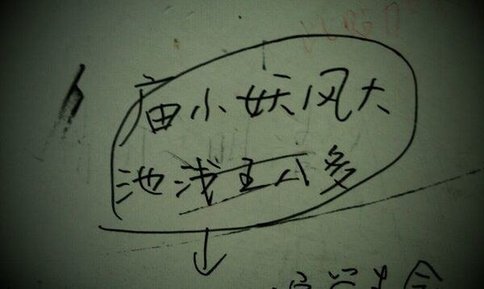 庙小妖风大
池浅王八多